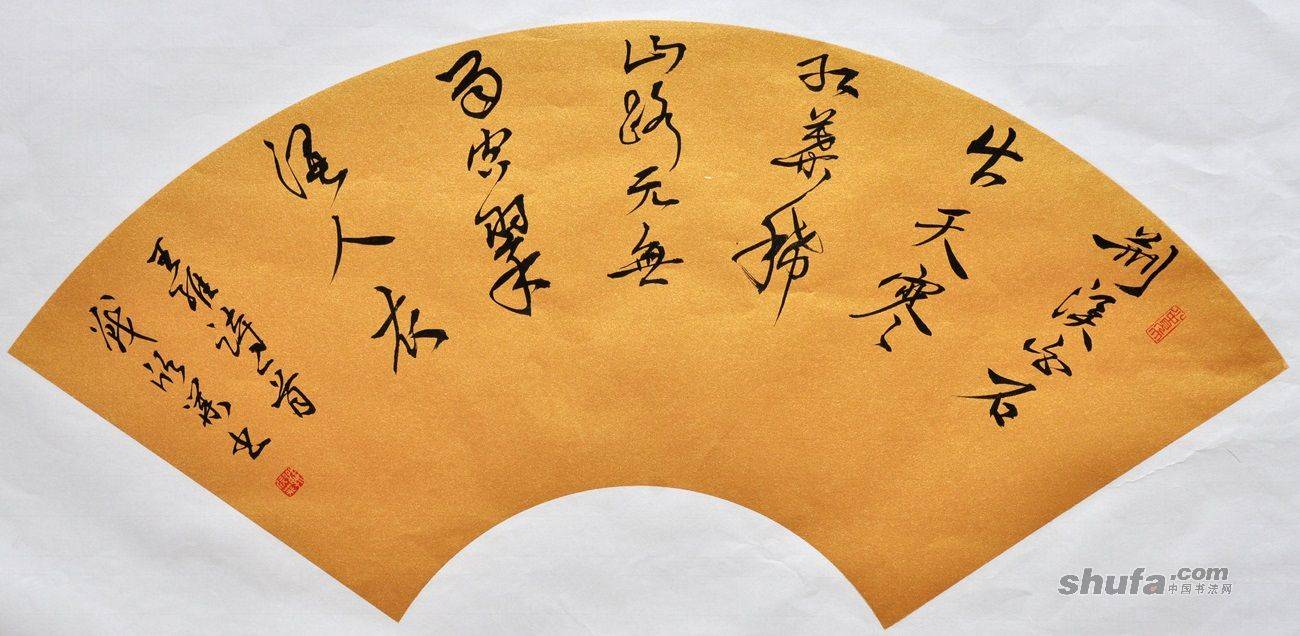 荆溪白石
出天寒
红葉稀
山路元無
雨空翠
濕人衣
王維詩一首
书
shufa.com
中国书法网